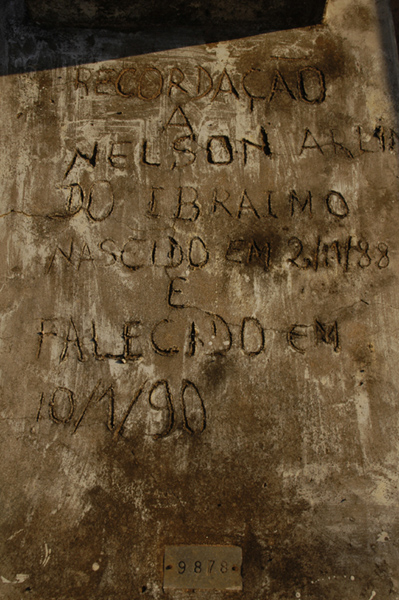 RECORDAÇÃO
A
NELSON ARLIN
DO IBRAIMO
NASCIDO EM 2/11/88
E
FALECIDO EM
10/1/90
9878